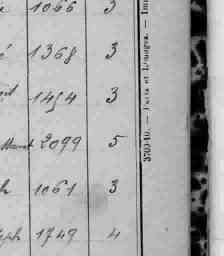 1066 3
1368 3
1454 3
2099 5
1061 3
1749 4
370340. — Paris et Limoges. — Imp